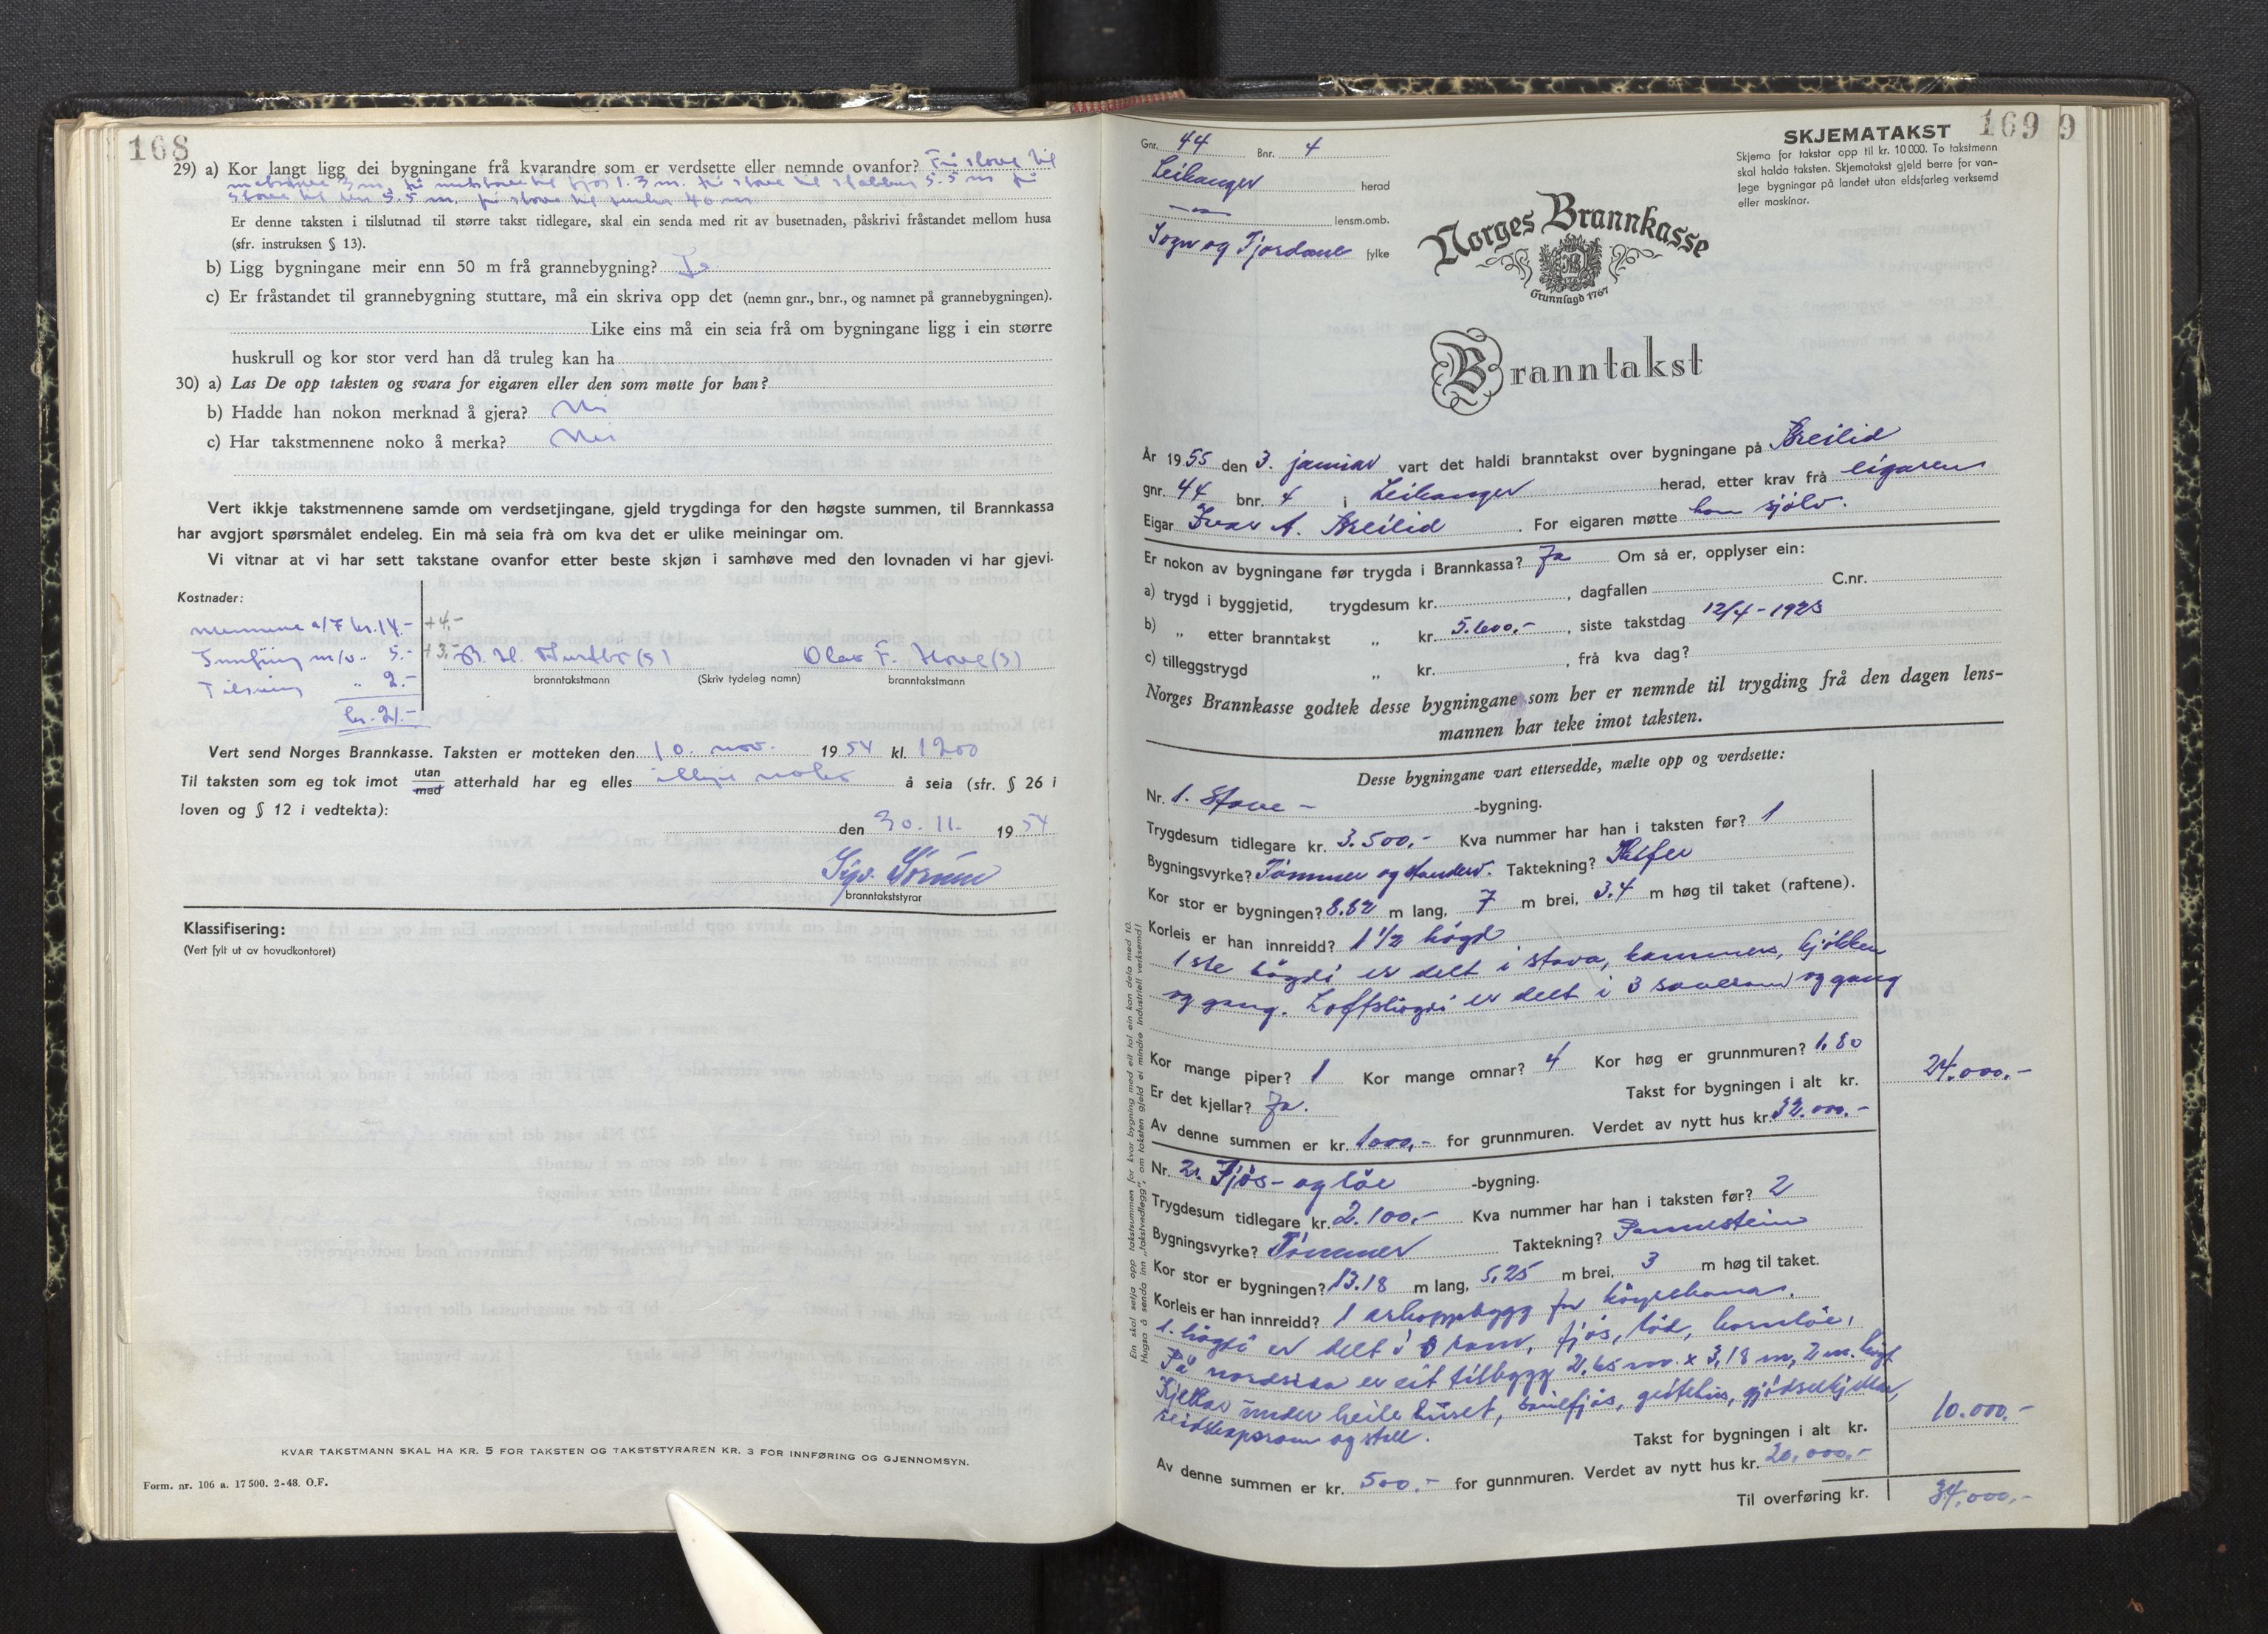 168
29) a) Kor langt ligg dei bygningane frå kvarandre som er verdsette eller nemnde ovanfor? Frå stove til
3 m, frå til fjøs 1.3 m. frå stove til stabbur 5.5 m frå
stove til 5.5 m, frå stove til 40 m
Er denne taksten i tilslutnad til større takst tidlegare, skal ein senda med rit av busetnaden, påskrivi fråstandet mellom husa
(sfr. instruksen § 13).
b) Ligg bygningane meir enn 50 m frå grannebygning? Ja
c) Er fråstandet til grannebygning stuttare, må ein skriva opp det (nemn gnr., bnr., og namnet på grannebygningen).
Like eins må ein seia frå om bygningane ligg i ein større
huskrull og kor stor verd han då truleg kan ha
30) a) Las De opp taksten og svara for eigaren eller den som møtte for han?
b) Hadde han nokon merknad å gjera? Nei
c) Har takstmennene noko å merka? Nei
Vert ikkje takstmennene samde om verdsetjingane, gjeld trygdinga for den høgste summen, til Brannkassa
har avgjort spørsmålet endeleg. Ein må seia frå om kva det er ulike meiningar om.
Vi vitnar at vi har sett takstane ovanfor etter beste skjøn i samhøve med den lovnaden vi har gjevi.
Kostnader:
Mennene a/7 kr. 14.- +4.-
Innføring m/v. 5.- +3.-
Tilsining " 2.-
kr. 21.-
Olav F. Hove (s)
branntakstmann (Skriv tydeleg namn) branntakstmann
Vert send Norges Brannkasse. Taksten er motteken den 10. nov. 1954 kl. 1200
Til taksten som eg tok imot utan/med atterhald har eg elles ikkje noko å seia (sfr. § 26 i
loven og § 12 i vedtekta):
den 30. 11. 1954
Sigv. Sørum
branntakststyrar
Klassifisering:
(Vert fylt ut av hovudkontoret)
KVAR TAKSTMANN SKAL HA KR. 5 FOR TAKSTEN OG TAKSTSTYRAREN KR. 3 FOR INNFØRING OG GJENNOMSYN.
Form. nr. 106 a. 17 500. 2-48. O.F.
169
9
SKJEMATAKST
Skjema for takstar opp til kr. 10 000. To takstmenn
skal halda taksten. Skjematakst gjeld berre for van-
lege bygningar på landet utan eldsfarleg verksemd
eller maskinar.
Gnr. 44 Bnr. 4
Leikanger herad
lensm.omb.
Sogn og Fjordane fylke
Norges Brannkasse
Grunnlagd 1767
Branntakst
År 1955 den 3. januar vart det haldi branntakst over bygningane på Breilid
gnr. 44 bnr. 4 i Leikanger herad, etter krav frå eigaren
Eigar Ivar A. Breilid. For eigaren møtte han sjølv.
Er nokon av bygningane før trygda i Brannkassa? Ja Om så er, opplyser ein:
a) trygd i byggjetid, trygdesum kr. , dagfallen C.nr.
b) „ etter branntakst „ kr. 5.600.- , siste takstdag 12/4-1923
c) tilleggstrygd „ kr. , frå kva dag?
Norges Brannkasse godtek desse bygningane som her er nemnde til trygding frå den dagen lens-
mannen har teke imot taksten.
Desse bygningane vart ettersedde, mælte opp og verdsette:
Nr. 1. Stove - -bygning.
Trygdesum tidlegare kr. 3.500.- Kva nummer har han i taksten før? 1
Bygningsvyrke? Tømmer og standerv. Taktekning? Skifer
Kor stor er bygningen? 8.82 m lang, 7 m brei, 3.4 m høg til taket (raftene).
Korleis er han innreidd? 1 1/2 høgd
1ste høgdi er delt i stova, kammers, kjökken
og gang. Loftshögdi er delt i 3 soverom og gang
Kor mange piper? 1 Kor mange omnar? 4 Kor høg er grunnmuren? 1.80
Er det kjellar? Ja. Takst for bygningen i alt kr. 24.000.-
Av denne summen er kr. 1000.- for grunnmuren. Verdet av nytt hus kr. 32.000.-
Nr. 2. Fjös- og löe -bygning.
Trygdesum tidlegare kr. 2.100.- Kva nummer har han i taksten før? 2
Bygningsvyrke? Tömmer Taktekning? Pannestein
Kor stor er bygningen? 13.18 m lang, 5,25 m brei, 3 m høg til taket.
Korleis er han innreidd? 1 arkoppbygg for höykehona.
1. högdi er delt i 3 rom, fjös, löd, kornlöe,
På nordsida er eit tilbygg 2.65 m. x 3,18 m, 2 m. högt
Kjellar under heile huset, småfjös, geitehus, gjödselkjellar,
reidskapsrom og stall.
Takst for bygningen i alt kr. 10.000.-
Av denne summen er kr. 500.- for gunnmuren. Verdet av nytt hus kr. 20,000.-
Til overføring kr. 34.000,-
Ein skal setja opp takstsummen for kvar bygning med eit tal ein kan dela med 10.
Hugsa å senda inn „takstvedlegg", om taksten gjeld ei mindre Industriell verksemd!